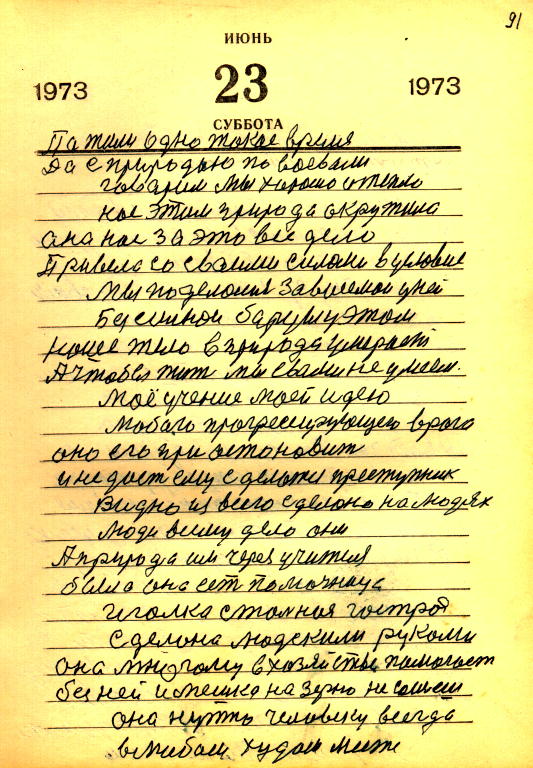 91
ИЮНЬ
1973 23 1973
СУББОТА
Пажили одно такое время
Да с природаю повоевали
гаварим мы харошо и тепло
нас этим природа акружила
ана нас за это все дело
Привела со сваими силами в условие
Мы поделались зависемои у ней
Бессилнои барцы у этом
наше тело в природа умерает
А чтобы жит мы свами не умеем.
Моё учение моей идею
Любаго прогрессирующего врага
оно его приостановит
и не даст ему сделатся преступник
Видно из всего сделоно на людях
Люди всему дело они
А природа им через учителя
была она ест помочница
Иголка стальная гострая
Сделона людскими руками
она многому в хозяйстве помогает
без ней и мешка на зерно не сошьеш
она нужна человеку всегда
в любом худом месте